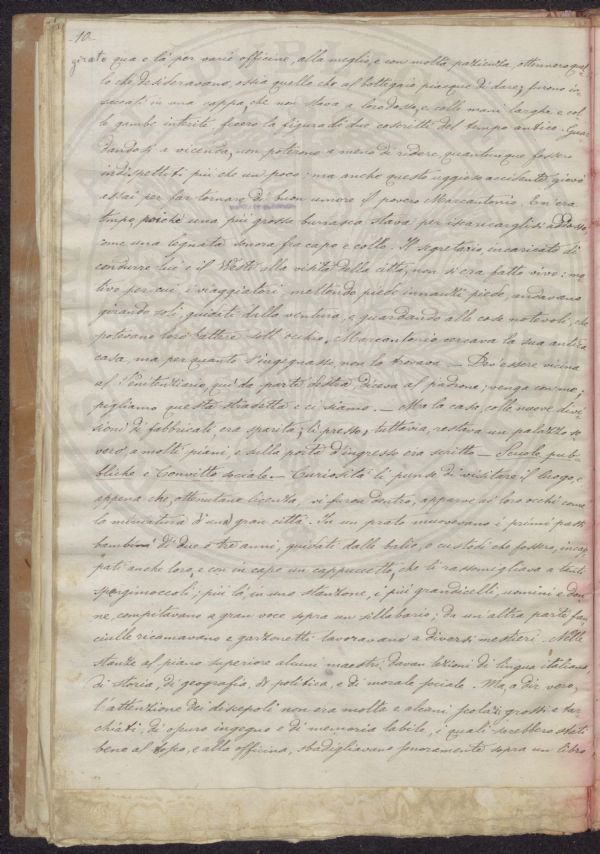 -10-
girato qua e là per varie officine, alla meglio, e con molta pazienza, ottennero quel
lo che desideravano, ossia quello che al bottegaio piacque di dare; furono in
saccati in una cappa, che non stava a loro dosso, e colle mani larghe e col
le gambe interite fecero la figura di due coscritti del tempo antico. Guar
dandosi a vicenda, non poterono a meno di ridere, quantunque fossero
indispettiti più che un poco: ma anche questo uggioso accidente giovò
assai per far tornare di buon umore il povero Marcantonio. Era
tempo, poichè una più grossa burrasca stava per iscaricarglisi addosso
come una legnata sonora fra capo e collo. Il segretario, incaricato di
condurre lui e il Vesti alla visita della città, non si era fatto vivo: mo
tivo per cui i viaggiatori, mettendo piede innanzi piede, andavano
girando soli, guidati dalla ventura, e guardando alle cose notevoli, che
potevano loro battere sott'occhio. Marcantonio cercava la sua antica
casa, ma per quanto s'ingegnasse, non la trovava. — Dev'essere vicina
al Penitenziario, qui da parte destra diceva al padrone; venga con me;
pigliamo questa stradetta e ci siamo. — Ma la casa, colle nuove divi
sioni di fabbricati, era sparita; lì presso, tuttavia, restava un palazzo se
vero, a molti piani, e sulla porta d'ingresso era scritto — Scuole pub-
bliche e Convitto sociale. — Curiosità li punse di visitare il luogo, e
appena che, ottenutane licenza, vi furon dentro, apparve ai loro occhi come
la miniatura d'una gran città. In un prato muovevano i primi passi
bambini di due o tre anni, guidati dalle balie, o custodi che fossero, incap
pati anche loro, e con in capo un cappuccetto, che li rassomigliava a tanti
; più là, in uno stanzone, i più grandicelli, uomini e don
ne, compitavano a gran voce sopra un sillabario; da un'altra parte fan
ciulle ricamavano e garzonetti lavoravano a diversi mestieri. Nelle
stanze al piano superiore alcuni maestri davan lezioni di lingua italiana
di storia, di geografia, di politica, e di morale sociale. Ma, a dir vero,
l'attenzione dei discepoli non era molta e alcuni scolari grossi e tar
chiati, di oscuro ingegno e di memoria labile, i quali sarebbero stati
bene al , e alla officina, sbadigliavano sonoramente sopra un libro